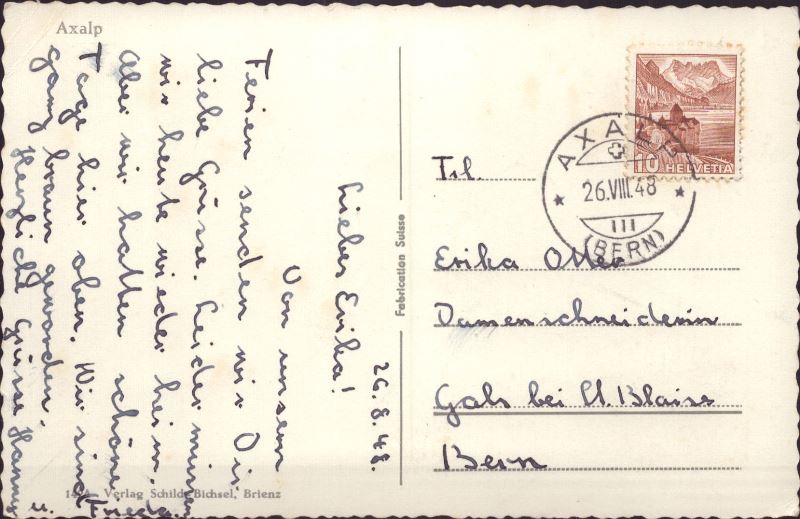 Axalp
26.8.48.
Liebes Erika!
Von unsern
Ferien senden wir Dir
liebe Grüsse. Leider müssen
wir heute wieder heim.
Aber wir hatten schöne
Tage hier oben. Wir sind
ganz braun geworden.
Herzliche Grüsse Hanny
u. Frieda.
Verlag Schild-Bichsel, Brienz
Fabrication Suisse
AXALP
26.VIII.48
III
(BERN)
10 HELVETIA
Frl.
Erika Otter
Damenschneiderin
Gals bei St. Blaise
Bern